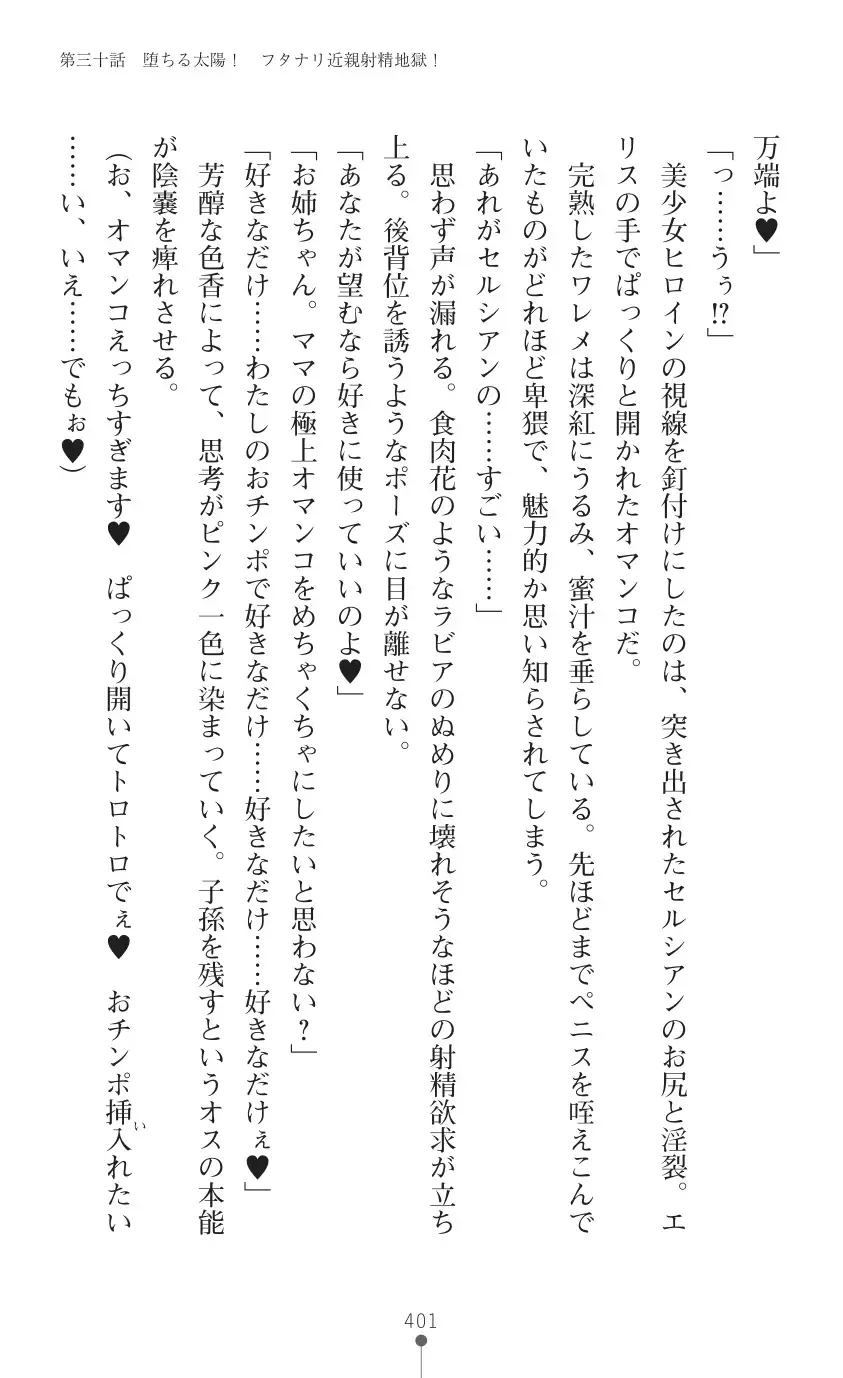 第三十話 堕ちる太陽！ フタナリ近親射精地獄！
万端よ♥」
「っ……うぅ!?」
美少女ヒロインの視線を釘付けにしたのは、突き出されたセルシアンのお尻と淫裂。エ
リスの手でぱっくりと開かれたオマンコだ。
完熟したワレメは深紅にうるみ、蜜汁を垂らしている。先ほどまでペニスを咥えこんで
いたものがどれほど卑猥で、魅力的か思い知らされてしまう。
「あれがセルシアンの……すごい……」
思わず声が漏れる。食肉花のようなラビアのぬめりに壊れそうなほどの射精欲求が立ち
上る。後背位を誘うようなポーズに目が離せない。
「あなたが望むなら好きに使っていいのよ♥」
「お姉ちゃん。ママの極上オマンコをめちゃくちゃにしたいと思わない？」
「好きなだけ……わたしのおチンポで好きなだけ……好きなだけ……好きなだけぇ♥」
芳醇な色香によって、思考がピンク一色に染まっていく。子孫を残すというオスの本能
が陰嚢を痺れさせる。
（お、オマンコえっちすぎます♥ ぱっくり開いてトロトロでぇ♥ おチンポ挿入れたい
い
……い、いえ……でもぉ♥）
401